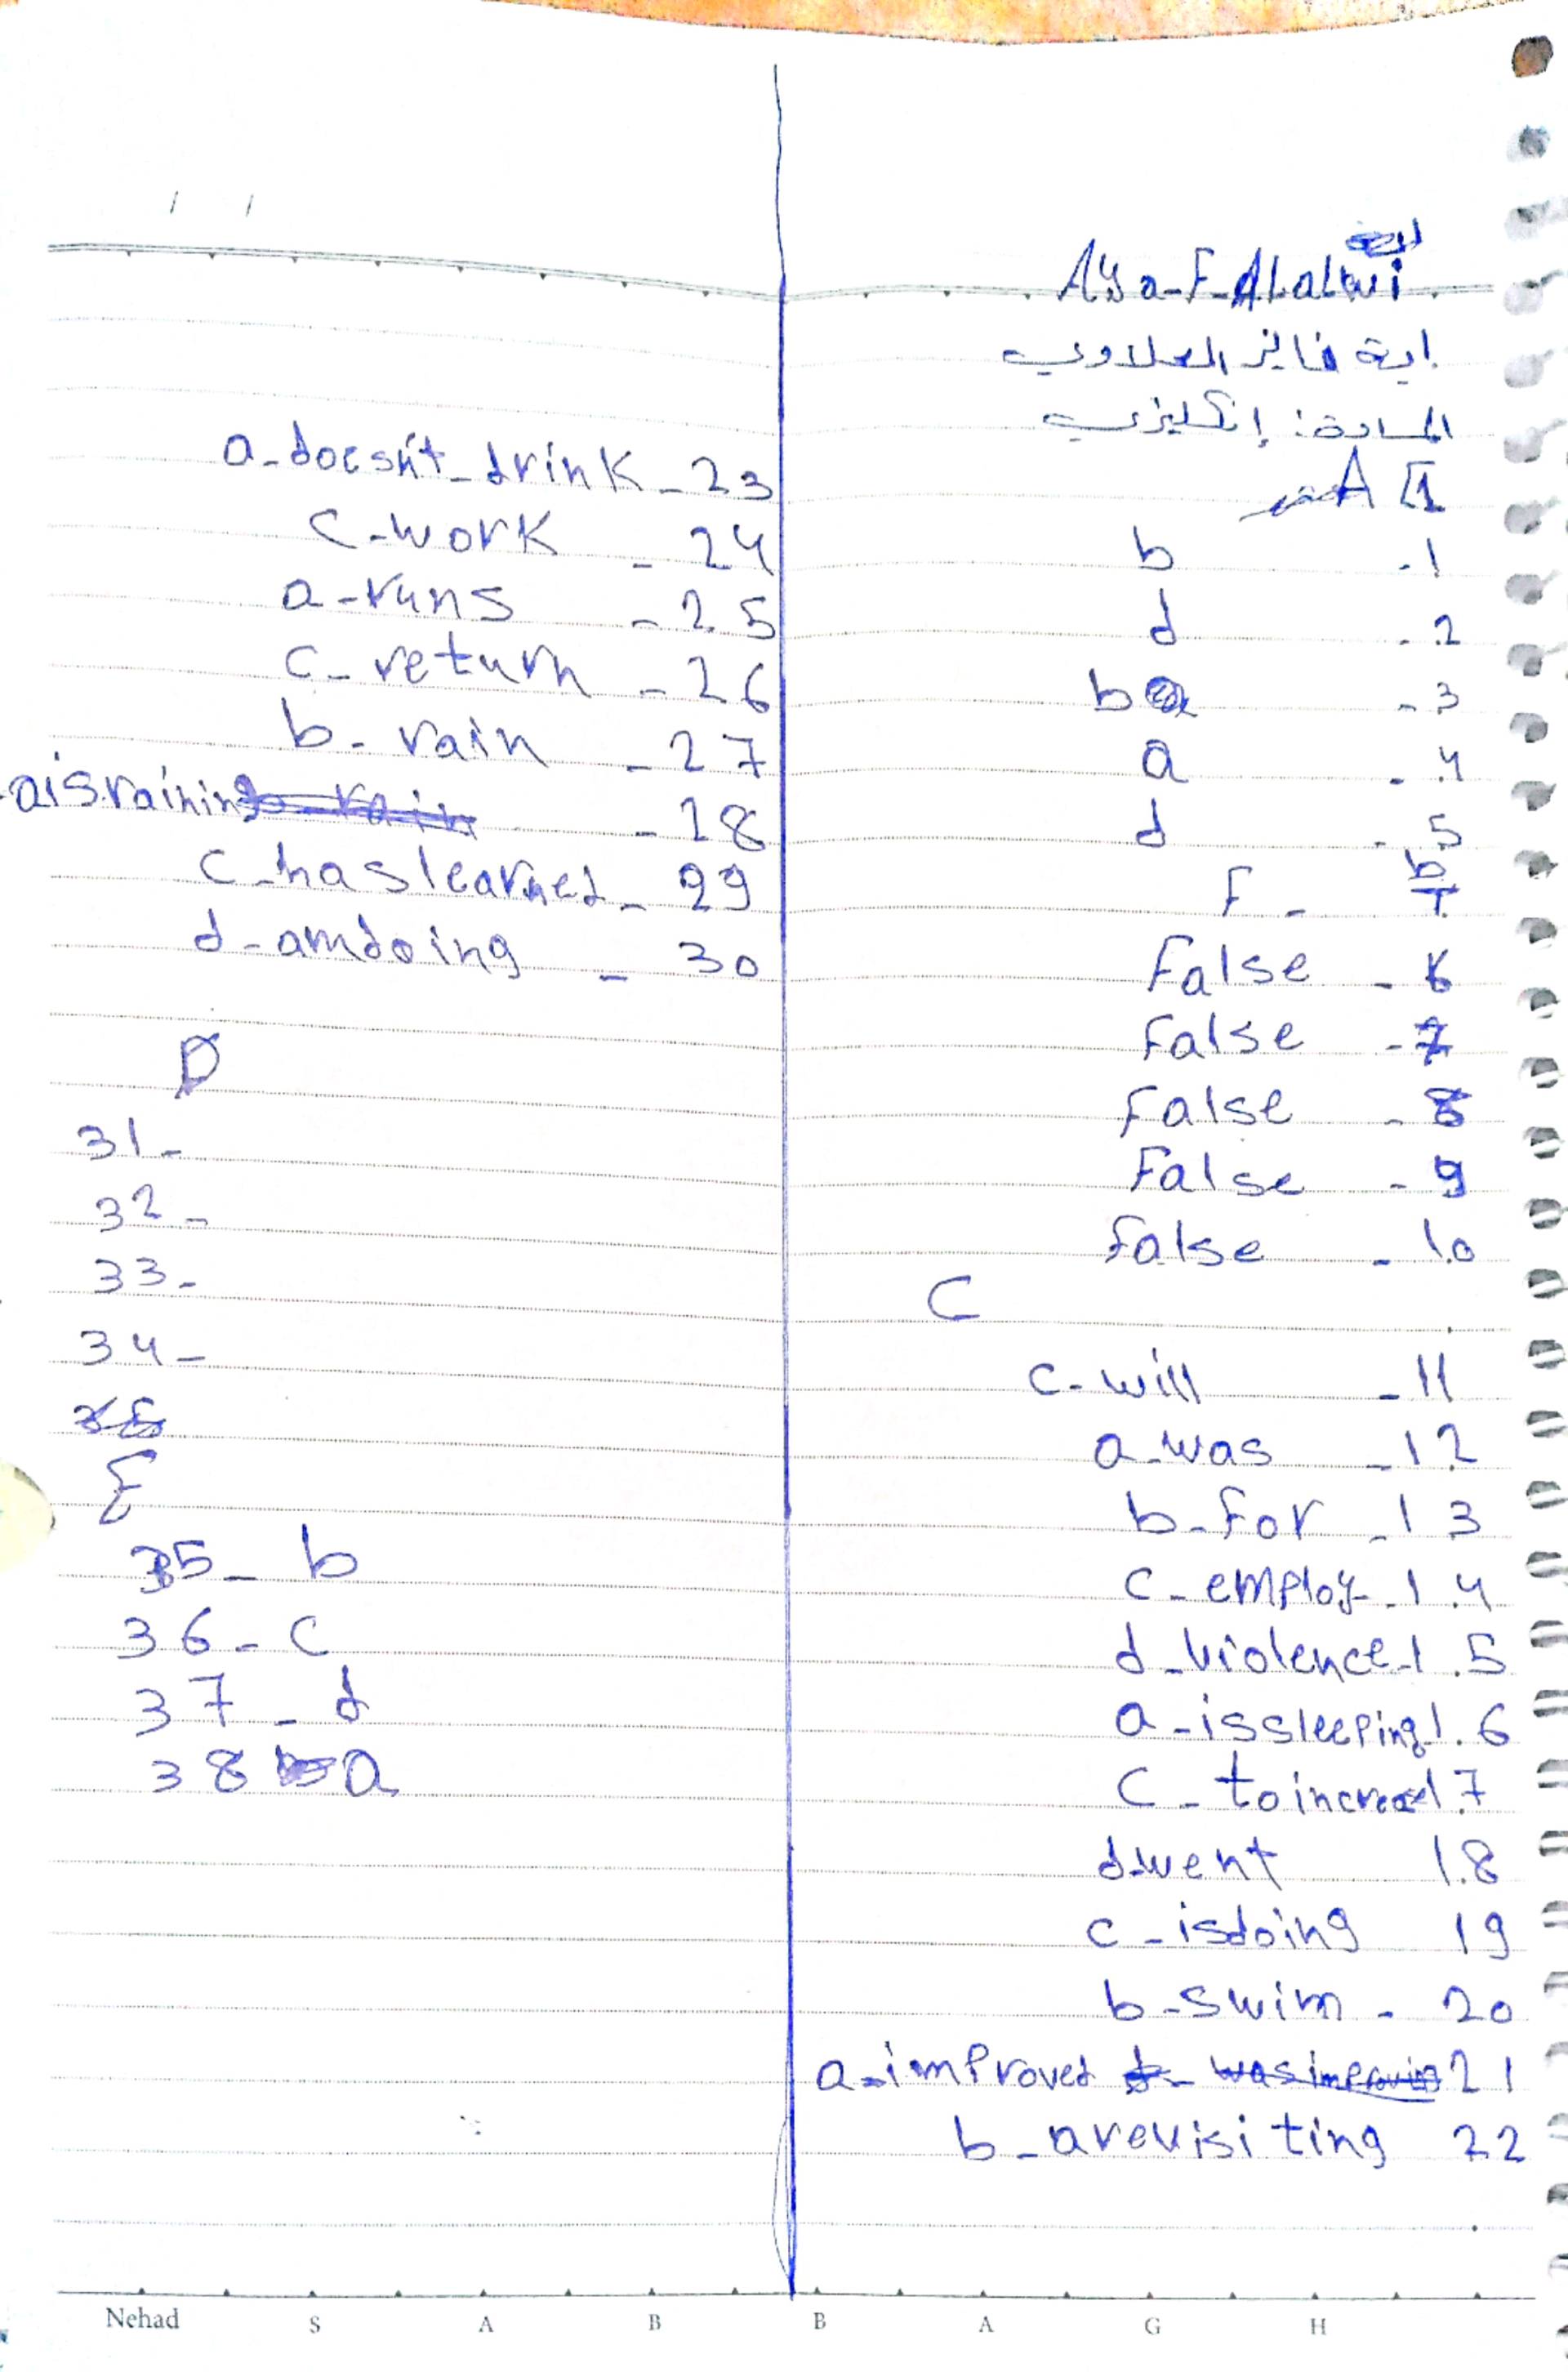 Aya-F-Alalwi
اية فايز العلاوي
المادة: إنكليزي
A [1
b -1
d -2
b -3
a -4
d -5
F - b/T
False - 6
False - 7
False - 8
False - 9
false - 10
C
c-will -11
a-was -12
b-for -13
c-employ-14
d-violence-15
a-issleeping16
c-toincreas17
d-went 18
c-isdoing 19
b-swim - 20
a-improved b- was improving 21
b-arevisiting 22
a-doesn't-drink-23
c-work - 24
a-runs - 25
c-return - 26
b-rain - 27
a is raining rain - 28
c-haslearned - 29
d-amdoing - 30
D
31-
32-
33-
34-
E
35- b
36- c
37- d
38 a
Nehad S A B B A G H